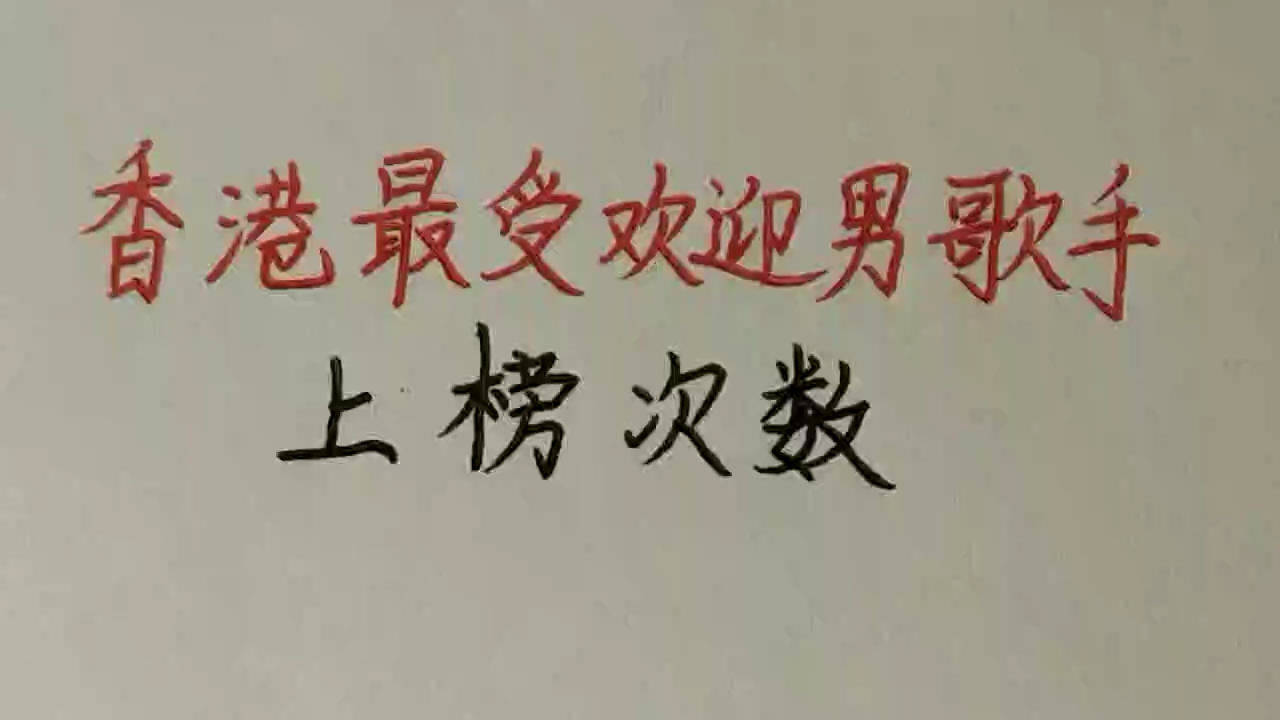 香港最受欢迎男歌手
上榜次数